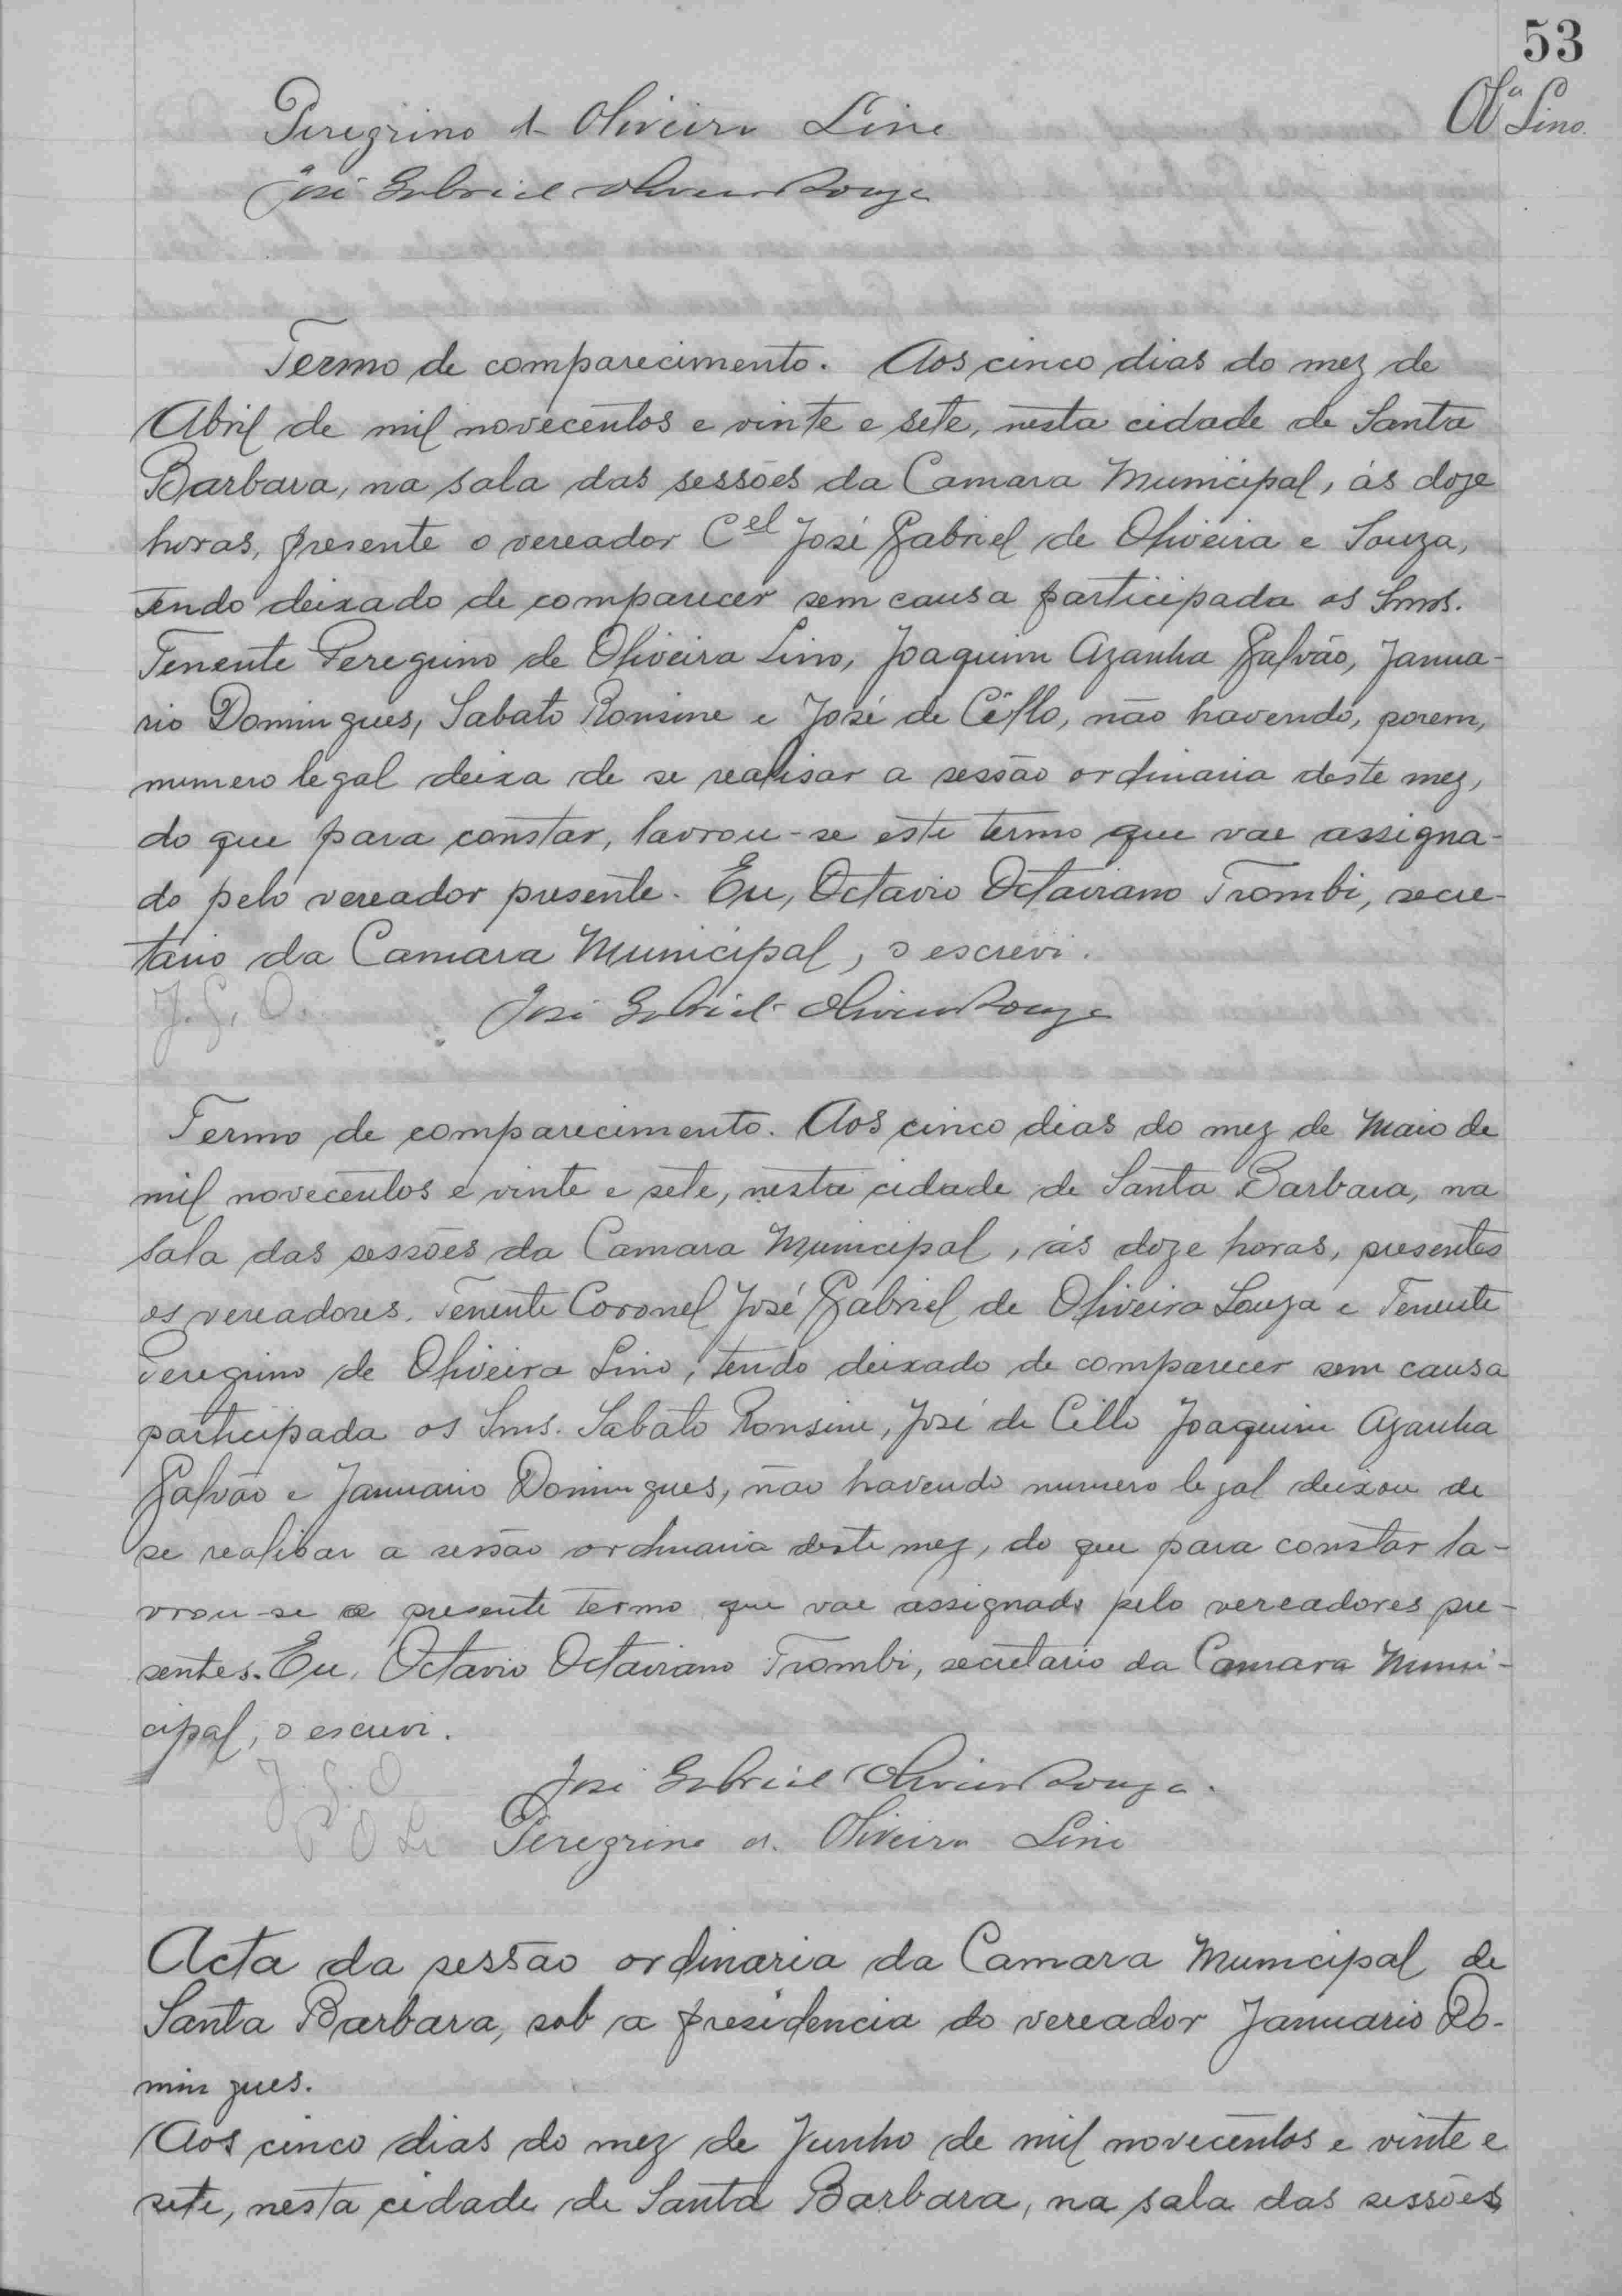 53
Ol.ª Lino.
Peregrino d Oliveira Lino
José Gabriel Oliveira Souza
Termo de comparecimento. Aos cinco dias do mez de
Abril de mil novecentos e vinte e sete, nesta cidade de Santa
Barbara, na sala das sessões da Camara Municipal, ás doze
horas, presente o vereador Cel José Gabriel de Oliveira e Souza,
tendo deixado de comparecer sem causa participada os Snrs.
Tenente Peregrino de Oliveira Lino, Joaquim Azanha Galvão, Janua-
rio Domingues, Sabato Ronsine e José de Cillo, não havendo, porem,
numero legal deixa de se realisar a sessão ordinaria deste mez,
do que para constar, lavrou-se este termo que vae assigna-
do pelo vereador presente. Eu, Octavio Octaviano Trombi, secre-
tario da Camara Municipal, o escrevi.
J. G. O. José Gabriel Oliveira Souza
Termo de comparecimento. Aos cinco dias do mez de Maio de
mil novecentos e vinte e sete, nesta cidade de Santa Barbara, na
sala das sessões da Camara Municipal, ás doze horas, presentes
os vereadores. Tenente Coronel José Gabriel de Oliveira Souza e Tenente
Peregrino de Oliveira Lino, tendo deixado de comparecer sem causa
participada os Snrs. Sabato Ronsine, José de Cillo Joaquim Azanha
Galvão e Januario Domingues, não havendo numero legal deixou de
se realisar a sessão ordinaria deste mez, do que para constar la-
vrou-se o presente termo que vae assignado pelo vereadores pre-
sentes. Eu, Octavio Octaviano Trombi, secretario da Camara Muni-
cipal, o escrevi.
J. G. O José Gabriel Oliveira Souza.
P O L Peregrino d. Oliveira Lino
Acta da sessão ordinaria da Camara Municipal de
Santa Barbara, sob a presidencia do vereador Januario Do-
mingues.
Aos cinco dias do mez de Junho de mil novecentos e vinte e
sete, nesta cidade de Santa Barbara, na sala das sessões